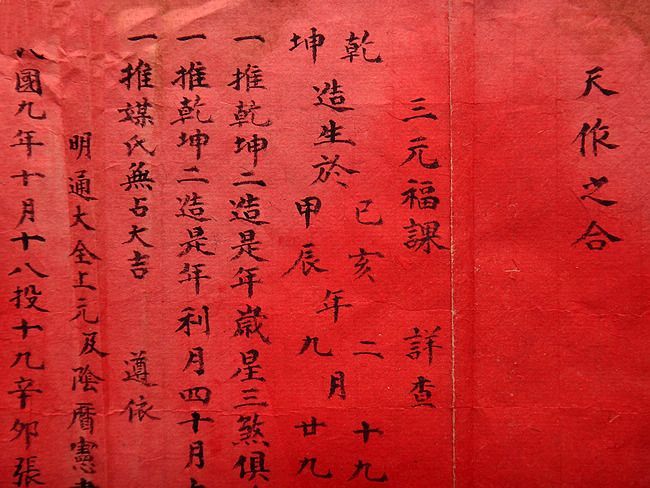 天作之合
三元福課 詳查
乾 造生於 己亥 年 二 月 十九
坤 甲辰 九 廿九
一推乾坤二造是年歲星三煞俱
一推乾坤二造是年利月四十月
一推媒氏無占大吉 遵依
明通大全上元及陰曆憲
國九年十月十八投十九辛卯張